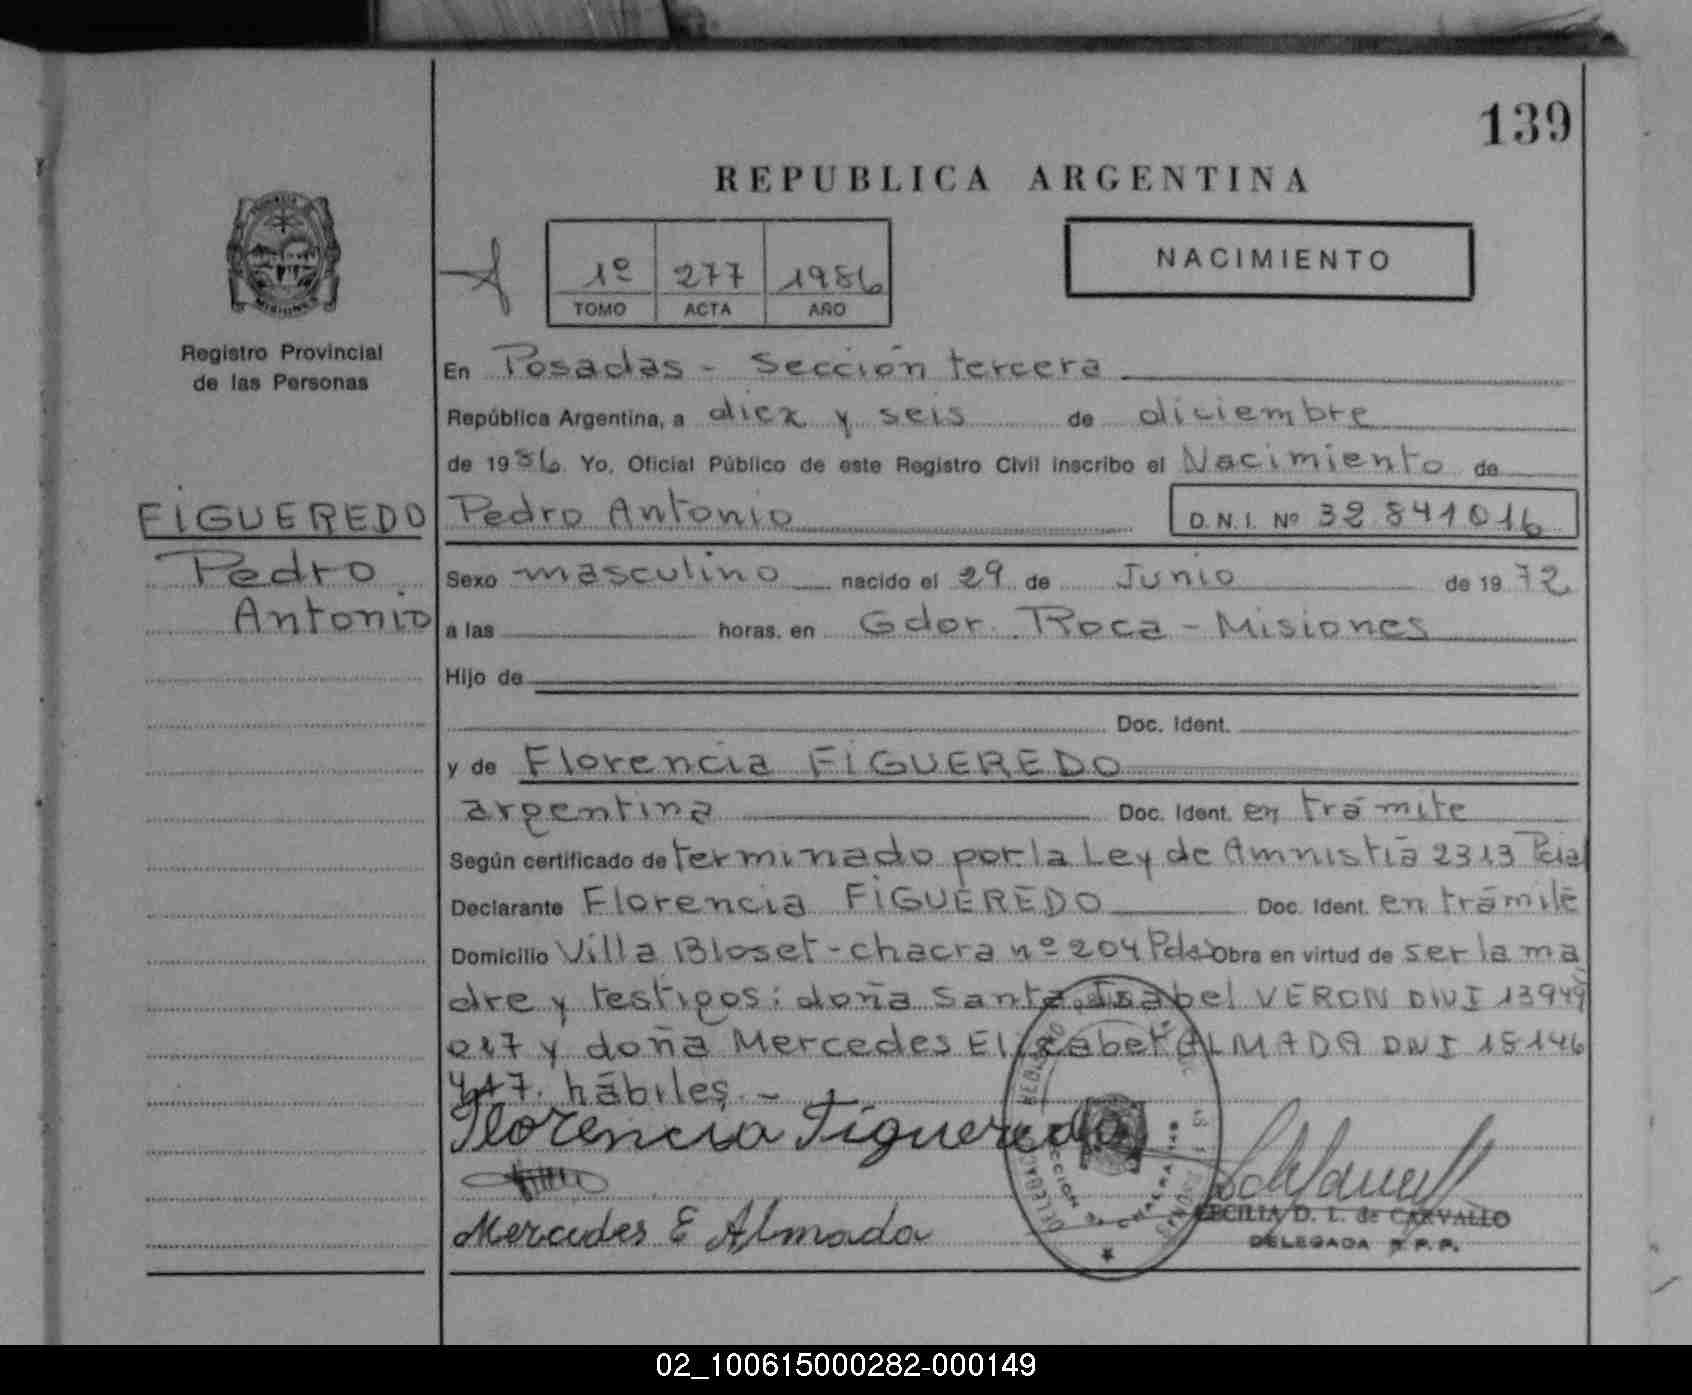 139
REPUBLICA ARGENTINA
1º 277 1986
TOMO ACTA AÑO
NACIMIENTO
Registro Provincial
de las Personas
En Posadas - Sección tercera
República Argentina, a diez y seis de diciembre
de 1986 Yo, Oficial Público de este Registro Civil inscribo el Nacimiento de
FIGUEREDO
Pedro
Antonio
Pedro Antonio D.N.I. Nº 32 841016
Sexo masculino nacido el 29 de Junio de 1972
a las horas. en Gdor. Roca - Misiones
Hijo de
Doc. Ident.
y de Florencia FIGUEREDO
argentina Doc. Ident. en trámite
Según certificado de terminado por la Ley de Amnistía 2313 Pcial
Declarante Florencia FIGUEREDO Doc. Ident. en trámite
Domicilio Villa Bloset - chacra nº 204 Pdas Obra en virtud de ser la ma
dre y testigos: doña Santa Isabel VERON DNI 13949
017 y doña Mercedes Elizabet ALMADA DNI 18146
417. hábiles. -
Florencia Figueredo
Mercedes E Almada
CECILIA D. L. de CARVALLO
DELEGADA R.P.P.
02_100615000282-000149